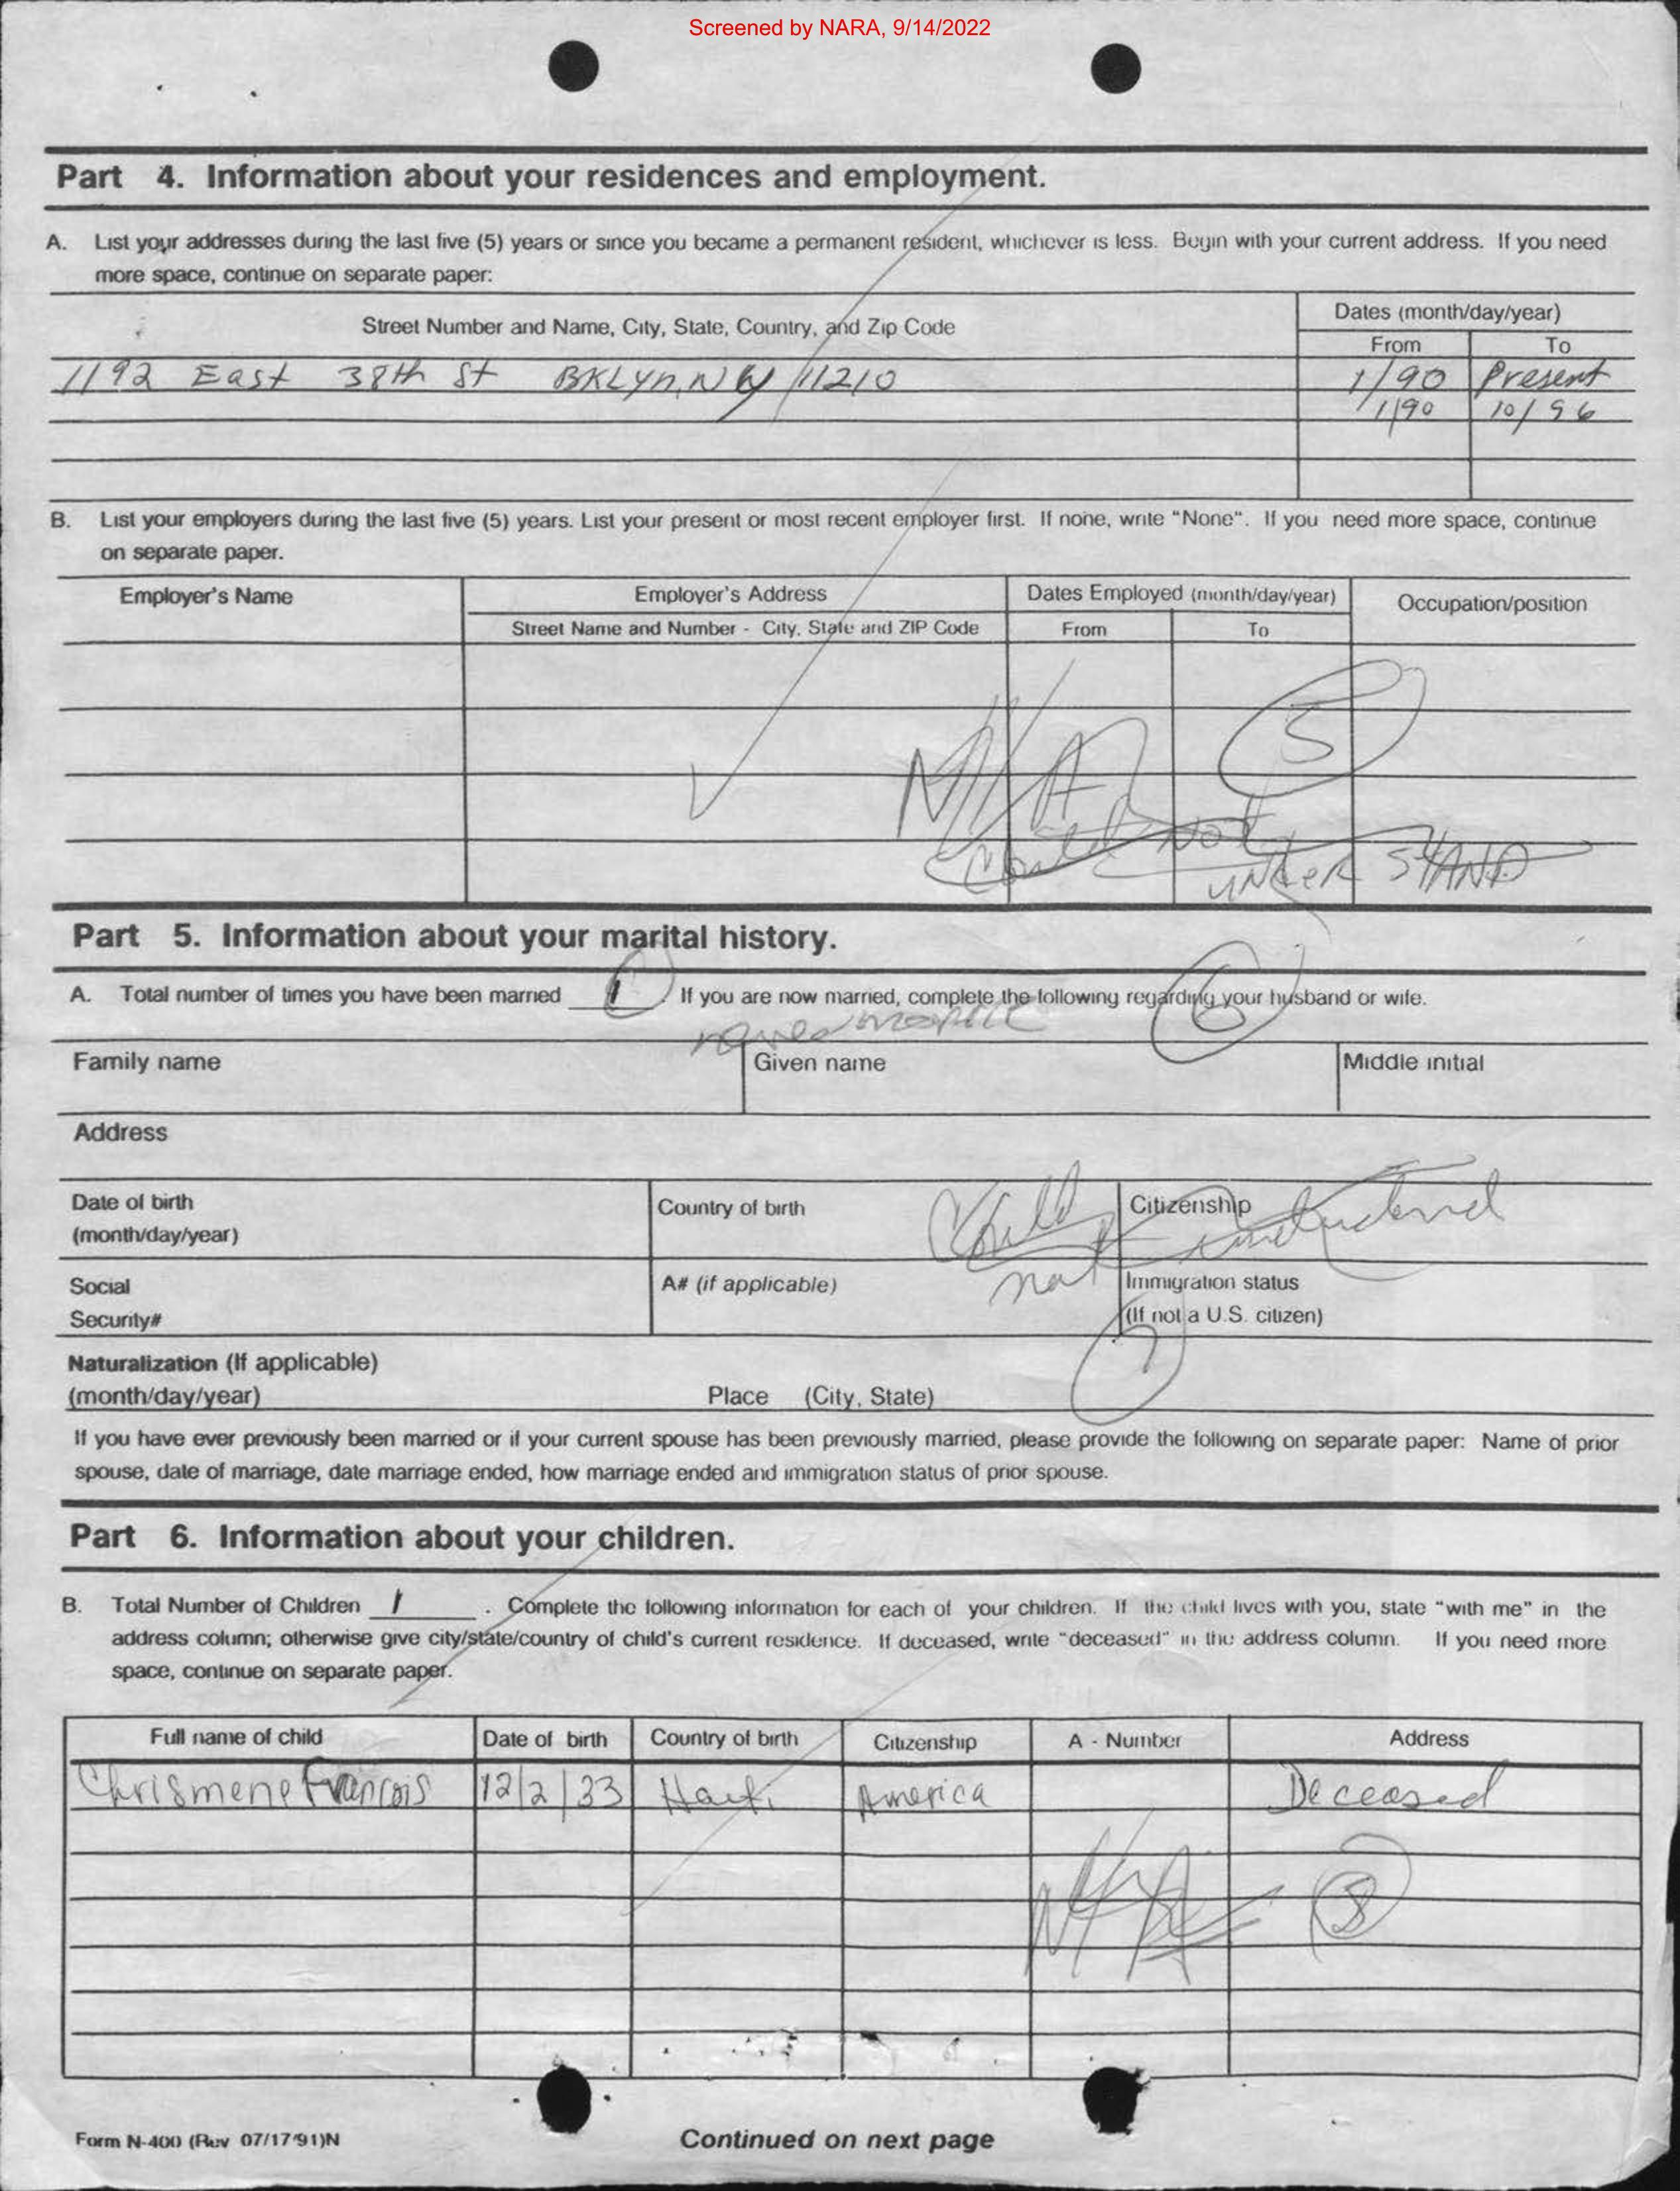 Screened by NARA, 9/14/2022
Part 4. Information about your residences and employment.
A. List your addresses during the last five (5) years or since you became a permanent resident, whichever is less. Begin with your current address. If you need
more space, continue on separate paper:
Street Number and Name, City, State, Country, and Zip Code
Dates (month/day/year)
From To
1192 East 38th St BKLyn, NY 11210 1/90 Present
1/90 10/96
B. List your employers during the last five (5) years. List your present or most recent employer first. If none, write "None". If you need more space, continue
on separate paper.
Employer's Name Employer's Address Dates Employed (month/day/year) Occupation/position
Street Name and Number - City, State and ZIP Code From To
5
N/A
Could Not
UNDER STAND
Part 5. Information about your marital history.
A. Total number of times you have been married 1 . If you are now married, complete the following regarding your husband or wife.
6
Family name Given name Middle initial
Address
Date of birth
(month/day/year)
Country of birth
Citizenship
Could not understand
Social
Security#
A# (if applicable)
Immigration status
(If not a U.S. citizen)
7
Naturalization (If applicable)
(month/day/year) Place (City, State)
If you have ever previously been married or if your current spouse has been previously married, please provide the following on separate paper: Name of prior
spouse, date of marriage, date marriage ended, how marriage ended and immigration status of prior spouse.
Part 6. Information about your children.
B. Total Number of Children 1 . Complete the following information for each of your children. If the child lives with you, state "with me" in the
address column; otherwise give city/state/country of child's current residence. If deceased, write "deceased" in the address column. If you need more
space, continue on separate paper.
Full name of child Date of birth Country of birth Citizenship A - Number Address
Chrismene Francois 12/2/33 Haiti America Deceased
8
Form N-400 (Rev 07/17/91)N
Continued on next page